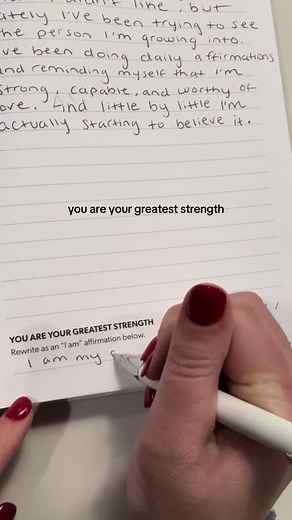 didn't like, but
lately I've been trying to see
the person I'm growing into.
I've been doing daily affirmations
and reminding myself that I'm
strong, capable, and worthy of
love. And little by little I'm
actually starting to believe it.
you are your greatest strength
YOU ARE YOUR GREATEST STRENGTH
Rewrite as an "I am" affirmation below.
I am my